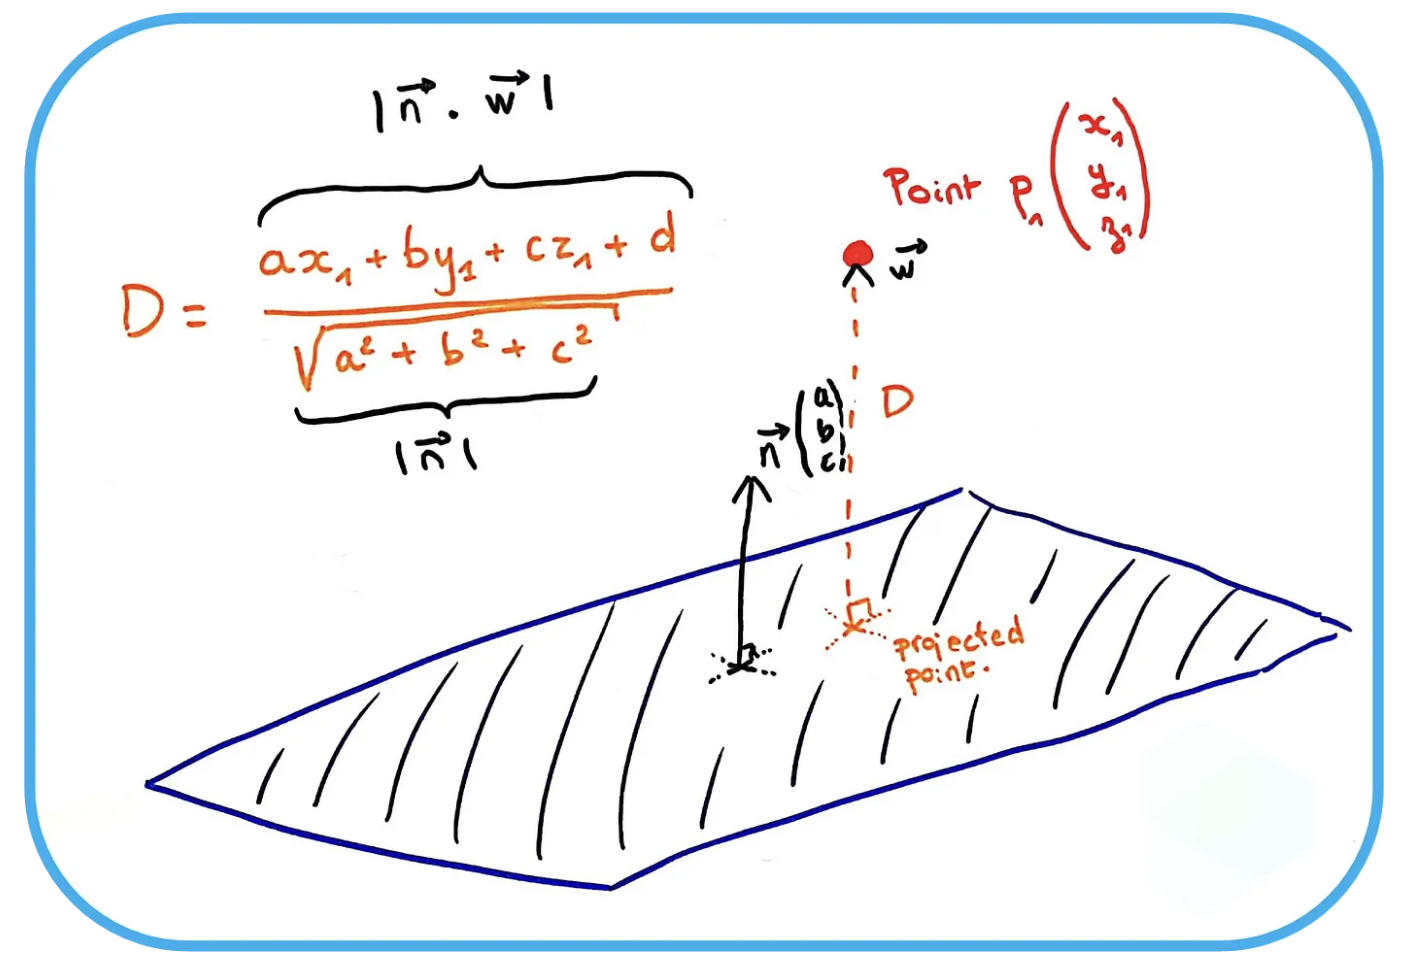 |n⃗ . w⃗|
D = (ax₁ + by₁ + cz₁ + d) / √(a² + b² + c²)
|n⃗|
Point P₁ (x₁ y₁ z₁)
w⃗
D
n⃗ (a b c)
projected
point.